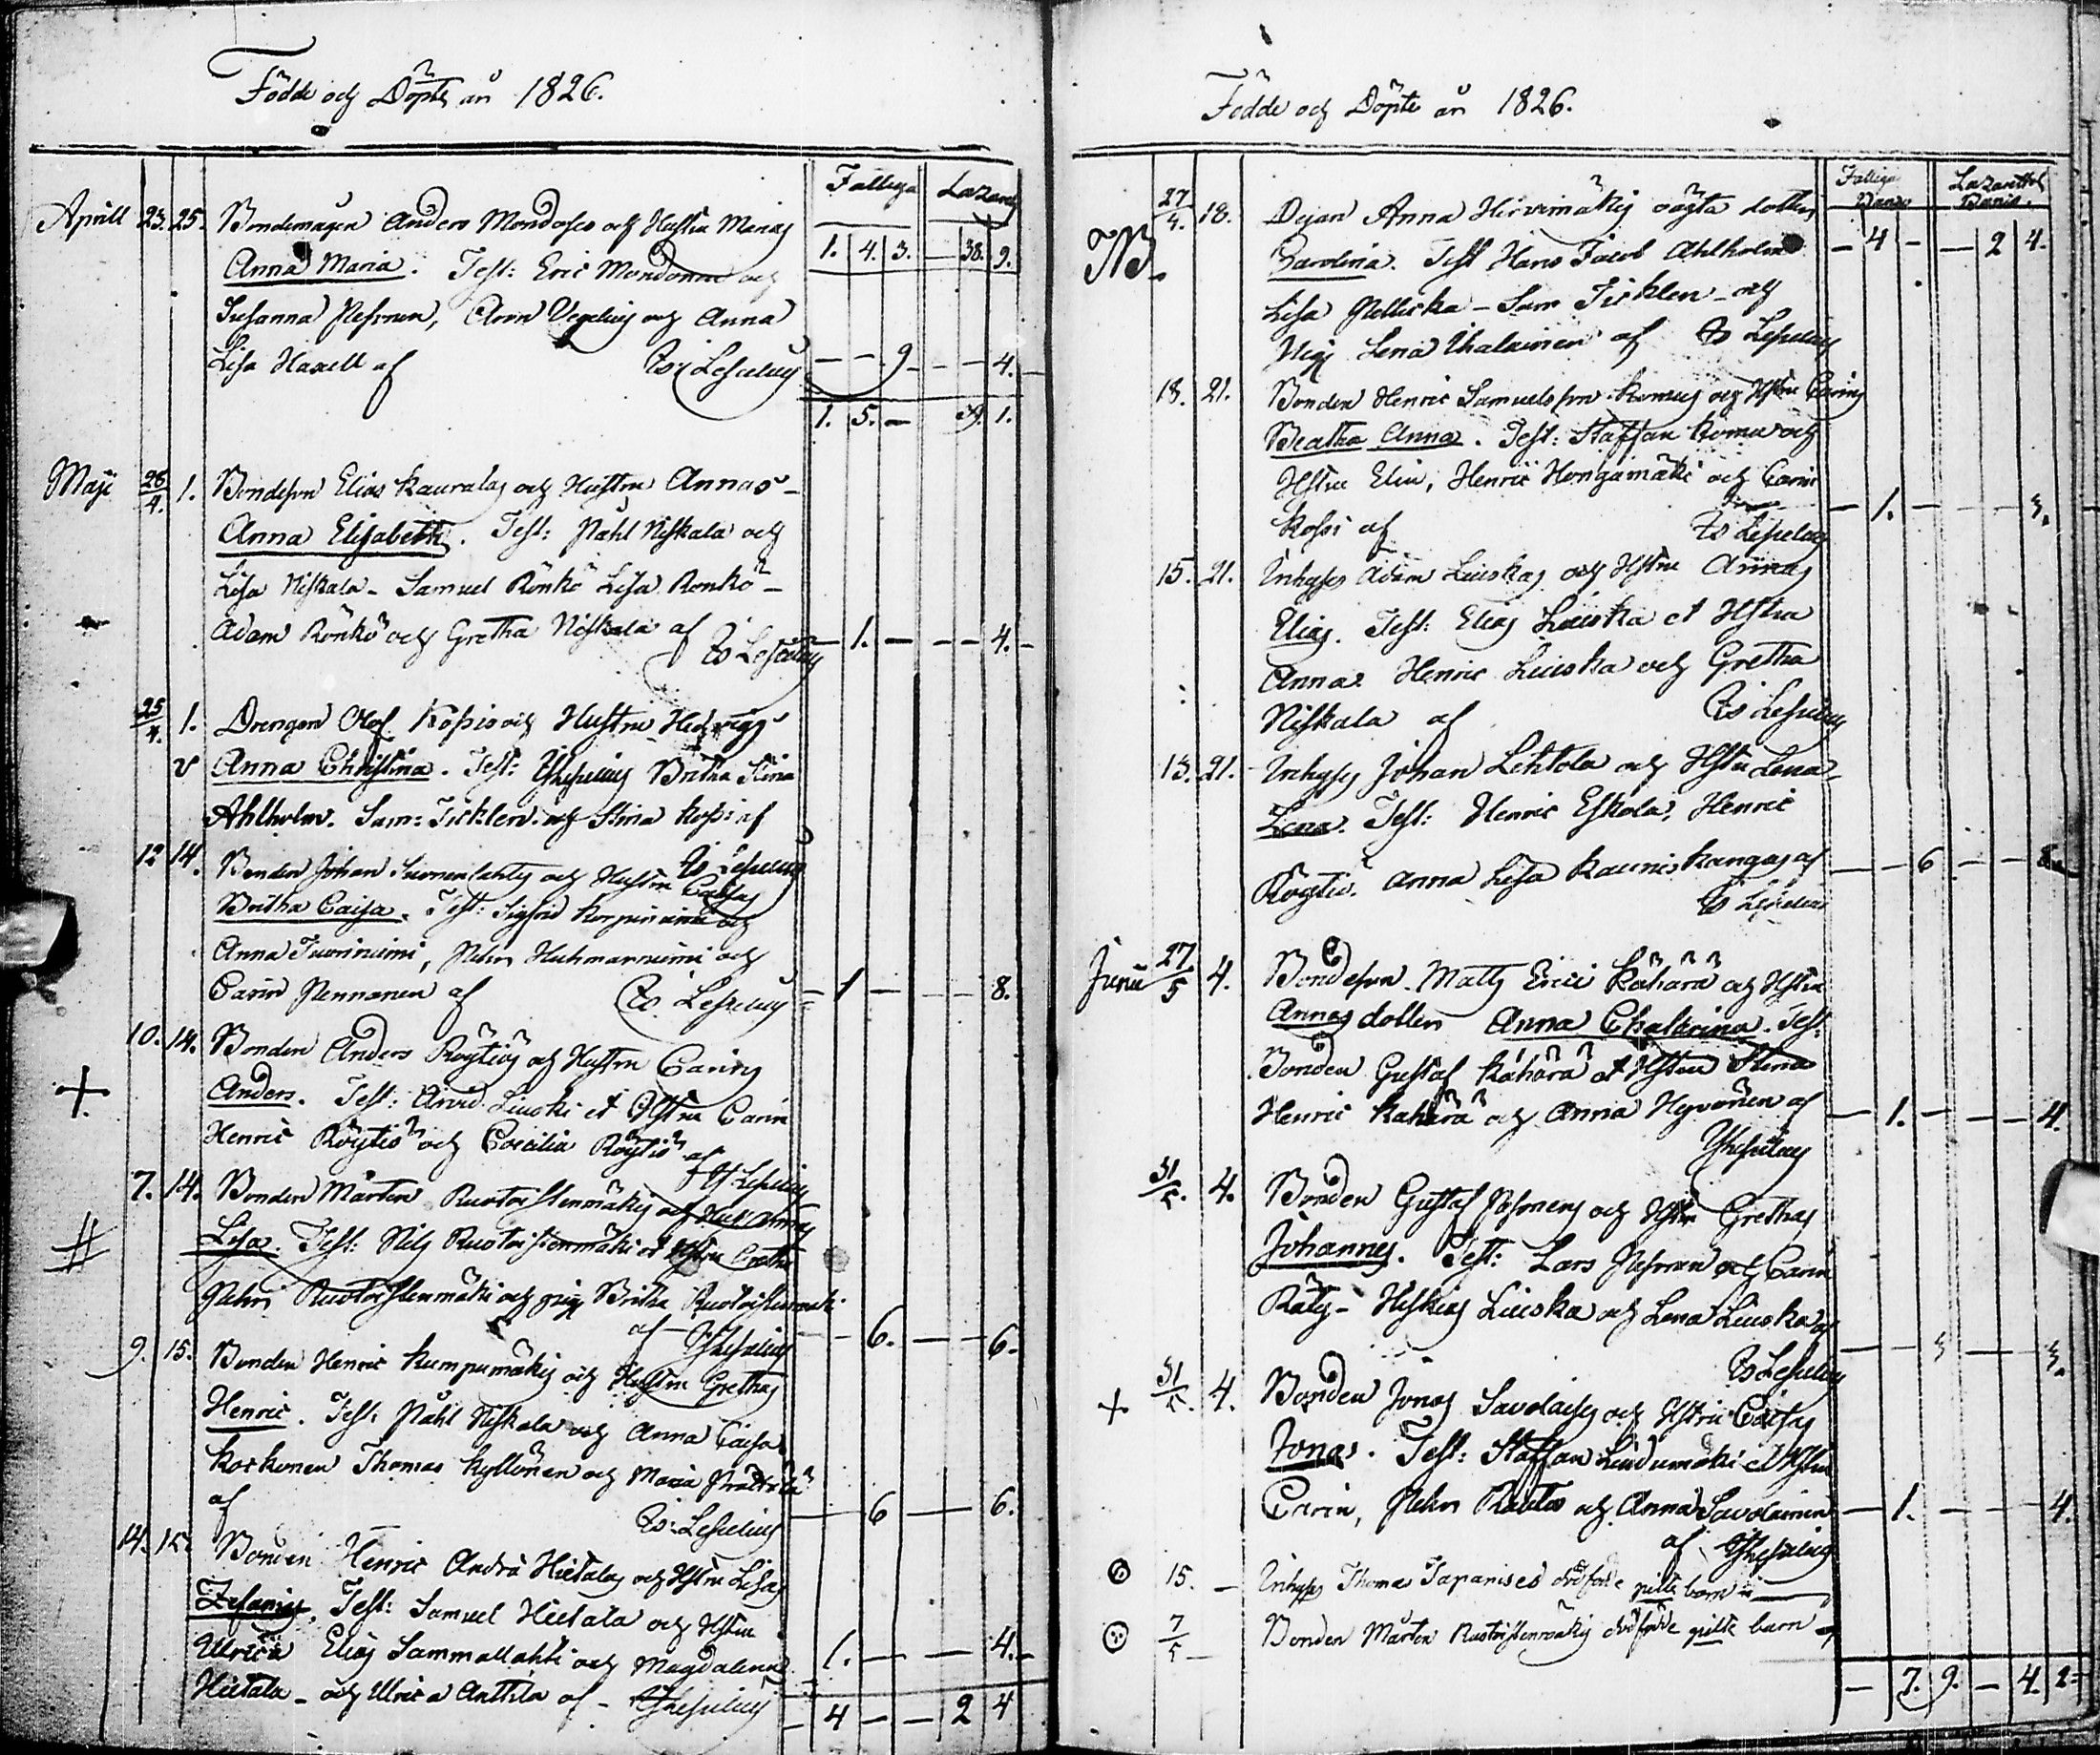 Födde och Döpte år 1826.
Fattiga Lazareth
Aprill 23. 25. Bondemågen Anders Mondoses och Hustru Marias
Anna Maria. Test: Eric Mondonen och 1. 4. 3. — 38. 9.
Susanna Pesonen, Aron Vegelius och Anna
Lisa Haxell af Es: Lesselius — — 9 — — 4.
1. 5. — 39. 1.
Maji 28/4. 1. Bondeson Elias Kauralas och Hustru Annas
Anna Elisabeth. Test: Påhl Niskala och
Lisa Niskala - Samuel Rönkö Lisa Rönkö -
Adam Rönkö och Gretha Niskala af Es Lesselius — 1. — — — 4. —
25/4. 1. Drengen Olof Kossis och Hustru Hedvigs
v Anna Christina. Test: Lesselius Britha Stina
Ahlholm. Sam: Ticklen och Stina Kossi af
Es Lesselius
12 14. Bonden Johan Suonenlahtis och Hustru Caisas
Britha Caisa. Test: Sigfrid Korpiniemi och
Anna Tuoriniemi, Pehr Huhmarniemi och
Carin Pennanen af Es. Lesselius — 1 — — — 8.
10. 14. Bonden Anders Röytiös och Hustru Carins
+ Anders. Test: Arvid Liuski et Hstru Carin
Henric Röytiö och Caecilia Röytiö af
Lesselius
7. 14. Bonden Mårten Ruotoistenmäkis och Hust Annas
# Lisa. Test: Nils Ruotoistenmäki et Hstru Gretha
Pehr Ruotoistenmäki och pig Britha Ruotoistenmäki
af Lesselius — 6. — — 6.
9. 15. Bonden Henric Kumpumäkis och Hustru Grethas
Henric. Test: Påhl Niskala och Anna Caisa
Korkonen Thomas Kyllönen och Maria
af Es: Lesselius — 6 — — 6.
14. 15. Bonden Henric Andrs Hietalas och Hstru Lisas
Zefanias. Test: Samuel Hietala och Hstru
Ulrica Elias Sammallahti och Magdalena 1. — — 4. —
Hietala - och Ulrica Anttila af - Lesselius
— 4 — — 2 4
Födde och Döpte år 1826.
Fattiga Lazarettet
27/4. 18. Pigan Anna Hirvimäkis oägta dotter
NB. Carolina. Test Hans Jacob Ahlholm — 4 — — 2 4.
Lisa Pelliska - Sam Ticklen - och
Pig Lena Ihalainen af Es Lesselius
18. 21. Bonden Henric Samuelsson Romus och Hstru Carins
Beatha Anna. Test: Staffan Romu och
Hstru Elin, Henric Hongamäki och Carin
Kossi af Es Lesselius — 1. — — — 3.
15. 21. Inhyses Adam Liuskas och Hstru Annas
Elias. Test: Elias Liuska et Hstru
Anna. Henric Liuska och Gretha
Niskala af Es Lesselius
13. 21. Inhyses Johan Lehtola och Hstru Lena
Lena. Test: Henric Eskola, Henric
Röytiö. Anna Lisa Kauniskangas af — — 6 — —
Es Lesselius
Junii 27/5 4. Bondeson Matts Erici Kähärä och Hstru
Annas dotter Anna Chatarina. Test:
Bonden Gustaf Kähärä et Hstru Stina
Henric Kähärä och Anna Hyvönen af — 1. — — — 4.
Lesselius
31/5. 4. Bonden Gustaf Pesonens och Hstru Grethas
Johannes. Test: Lars Pesonen och Carin
Räty - Heskias Liuska och Lena Liuska af
Es Lesselius — — 3 — — 3.
+ 31/5. 4. Bonden Jonas Savolaises och Hstru Caisas
Jonas. Test: Staffan Lindumäki et Hstru
Carin, Pehr Rautio och Anna Savolainen — 1. — — — 4.
af Lesselius
15. — Inhyses Thomas Tapanises dödfödde pilte barn
7/5 — Bonden Mårten Ruotoistenmäkis dödfödde pilte barn
— 7. 9. — 4. 2